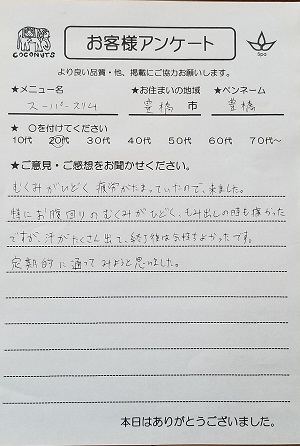 COCONUTS
お客様アンケート
Spa
より良い品質・他、掲載にご協力お願いします。
★メニュー名 ★お住まいの地域 ★ペンネーム
スーパースリム 豊橋 市 豊橋
★ ○を付けてください
10代 20代 30代 40代 50代 60代 70代~
★ご意見・ご感想をお聞かせください。
むくみがひどく疲労がたまっていたので、来ました。
特にお腹回りのむくみがひどく、もみ出しの時も痛かった
ですが、汗がたくさん出て、終了後は気持ちよかったです。
定期的に通ってみようと思いました。
本日はありがとうございました。